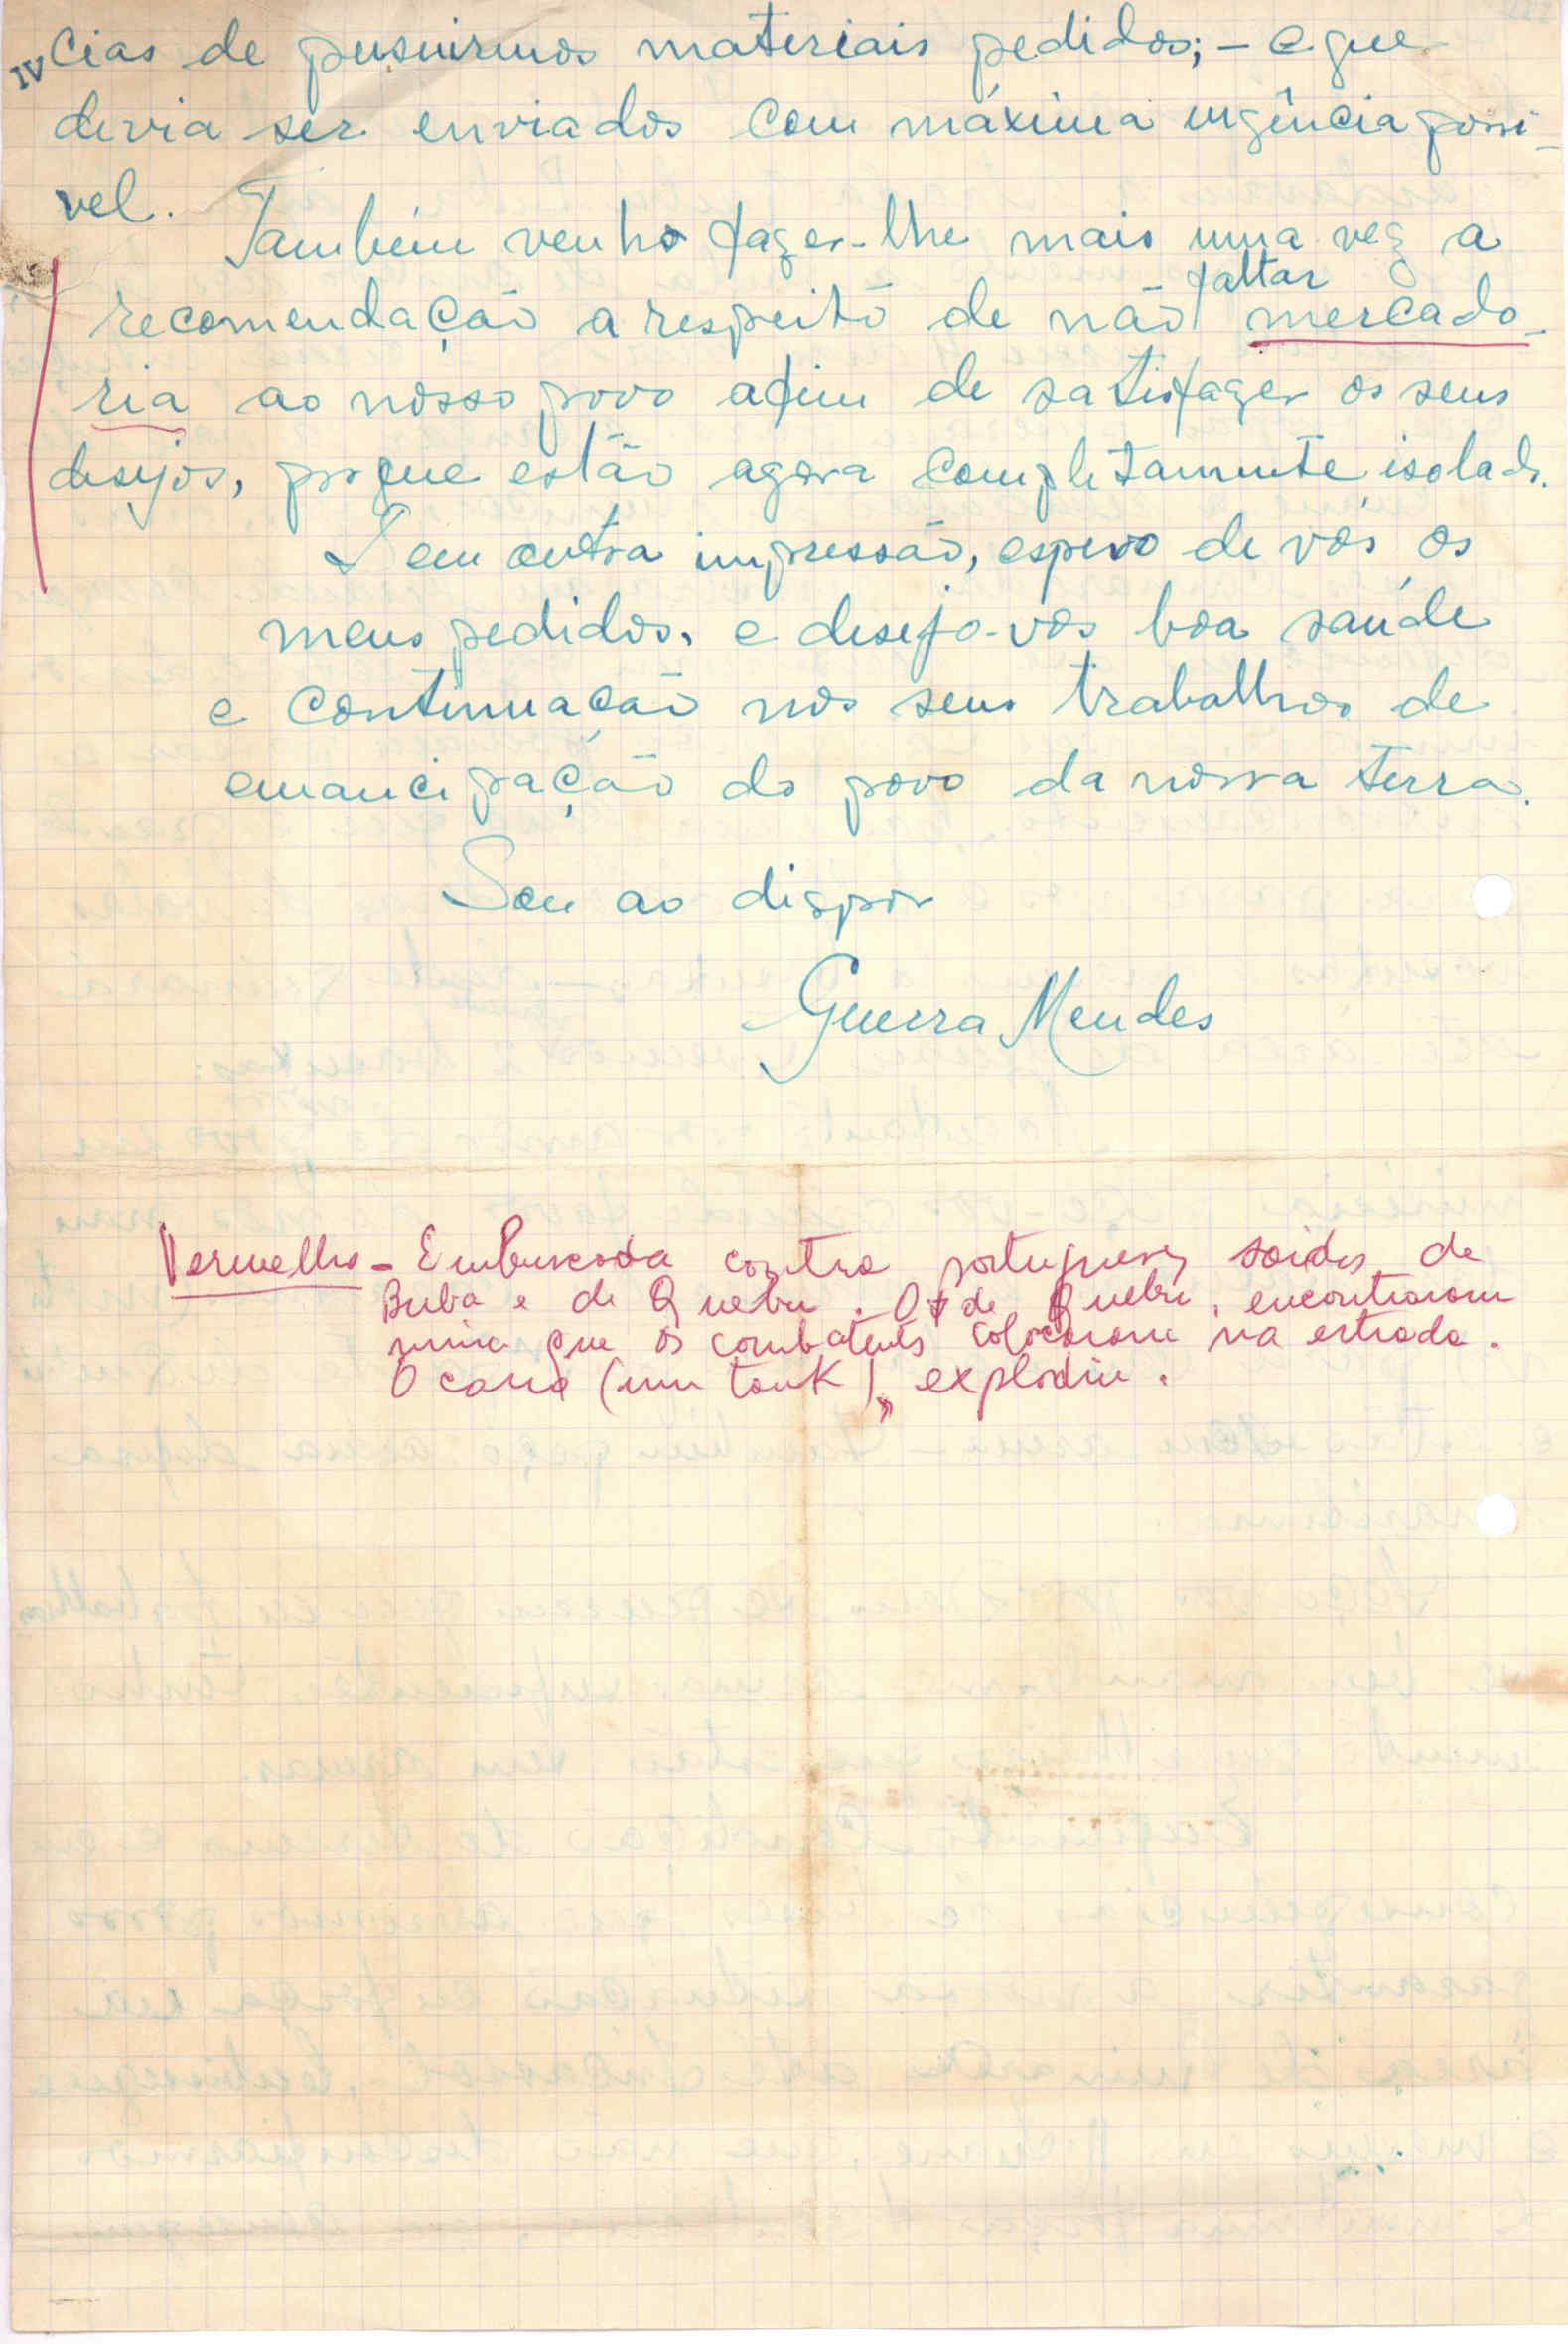 IV cias de pusuirmos materiais pedidos; – e que
devia ser enviados com máxima urgência possi-
vel.
Também venho fazer-lhe mais uma vez a
recomendação a respeito de não faltar mercado-
ria ao nosso povo afim de satisfazer os seus
desejos, porque estão agora completamente isolado.
Sem outra impressão, espero de vós os
meus pedidos, e desejo-vos boa saúde
e continuação nos seus trabalhos de
emancipação do povo da nossa terra.
Sou ao dispor
Guerra Mendes
Vermelho – Emboscada contra portugueses saidos de
Buba e de Quebu. Os de Quebu, encontraram
mina que os combatentes colocaram na estrada.
O carro (um tank), explodiu.